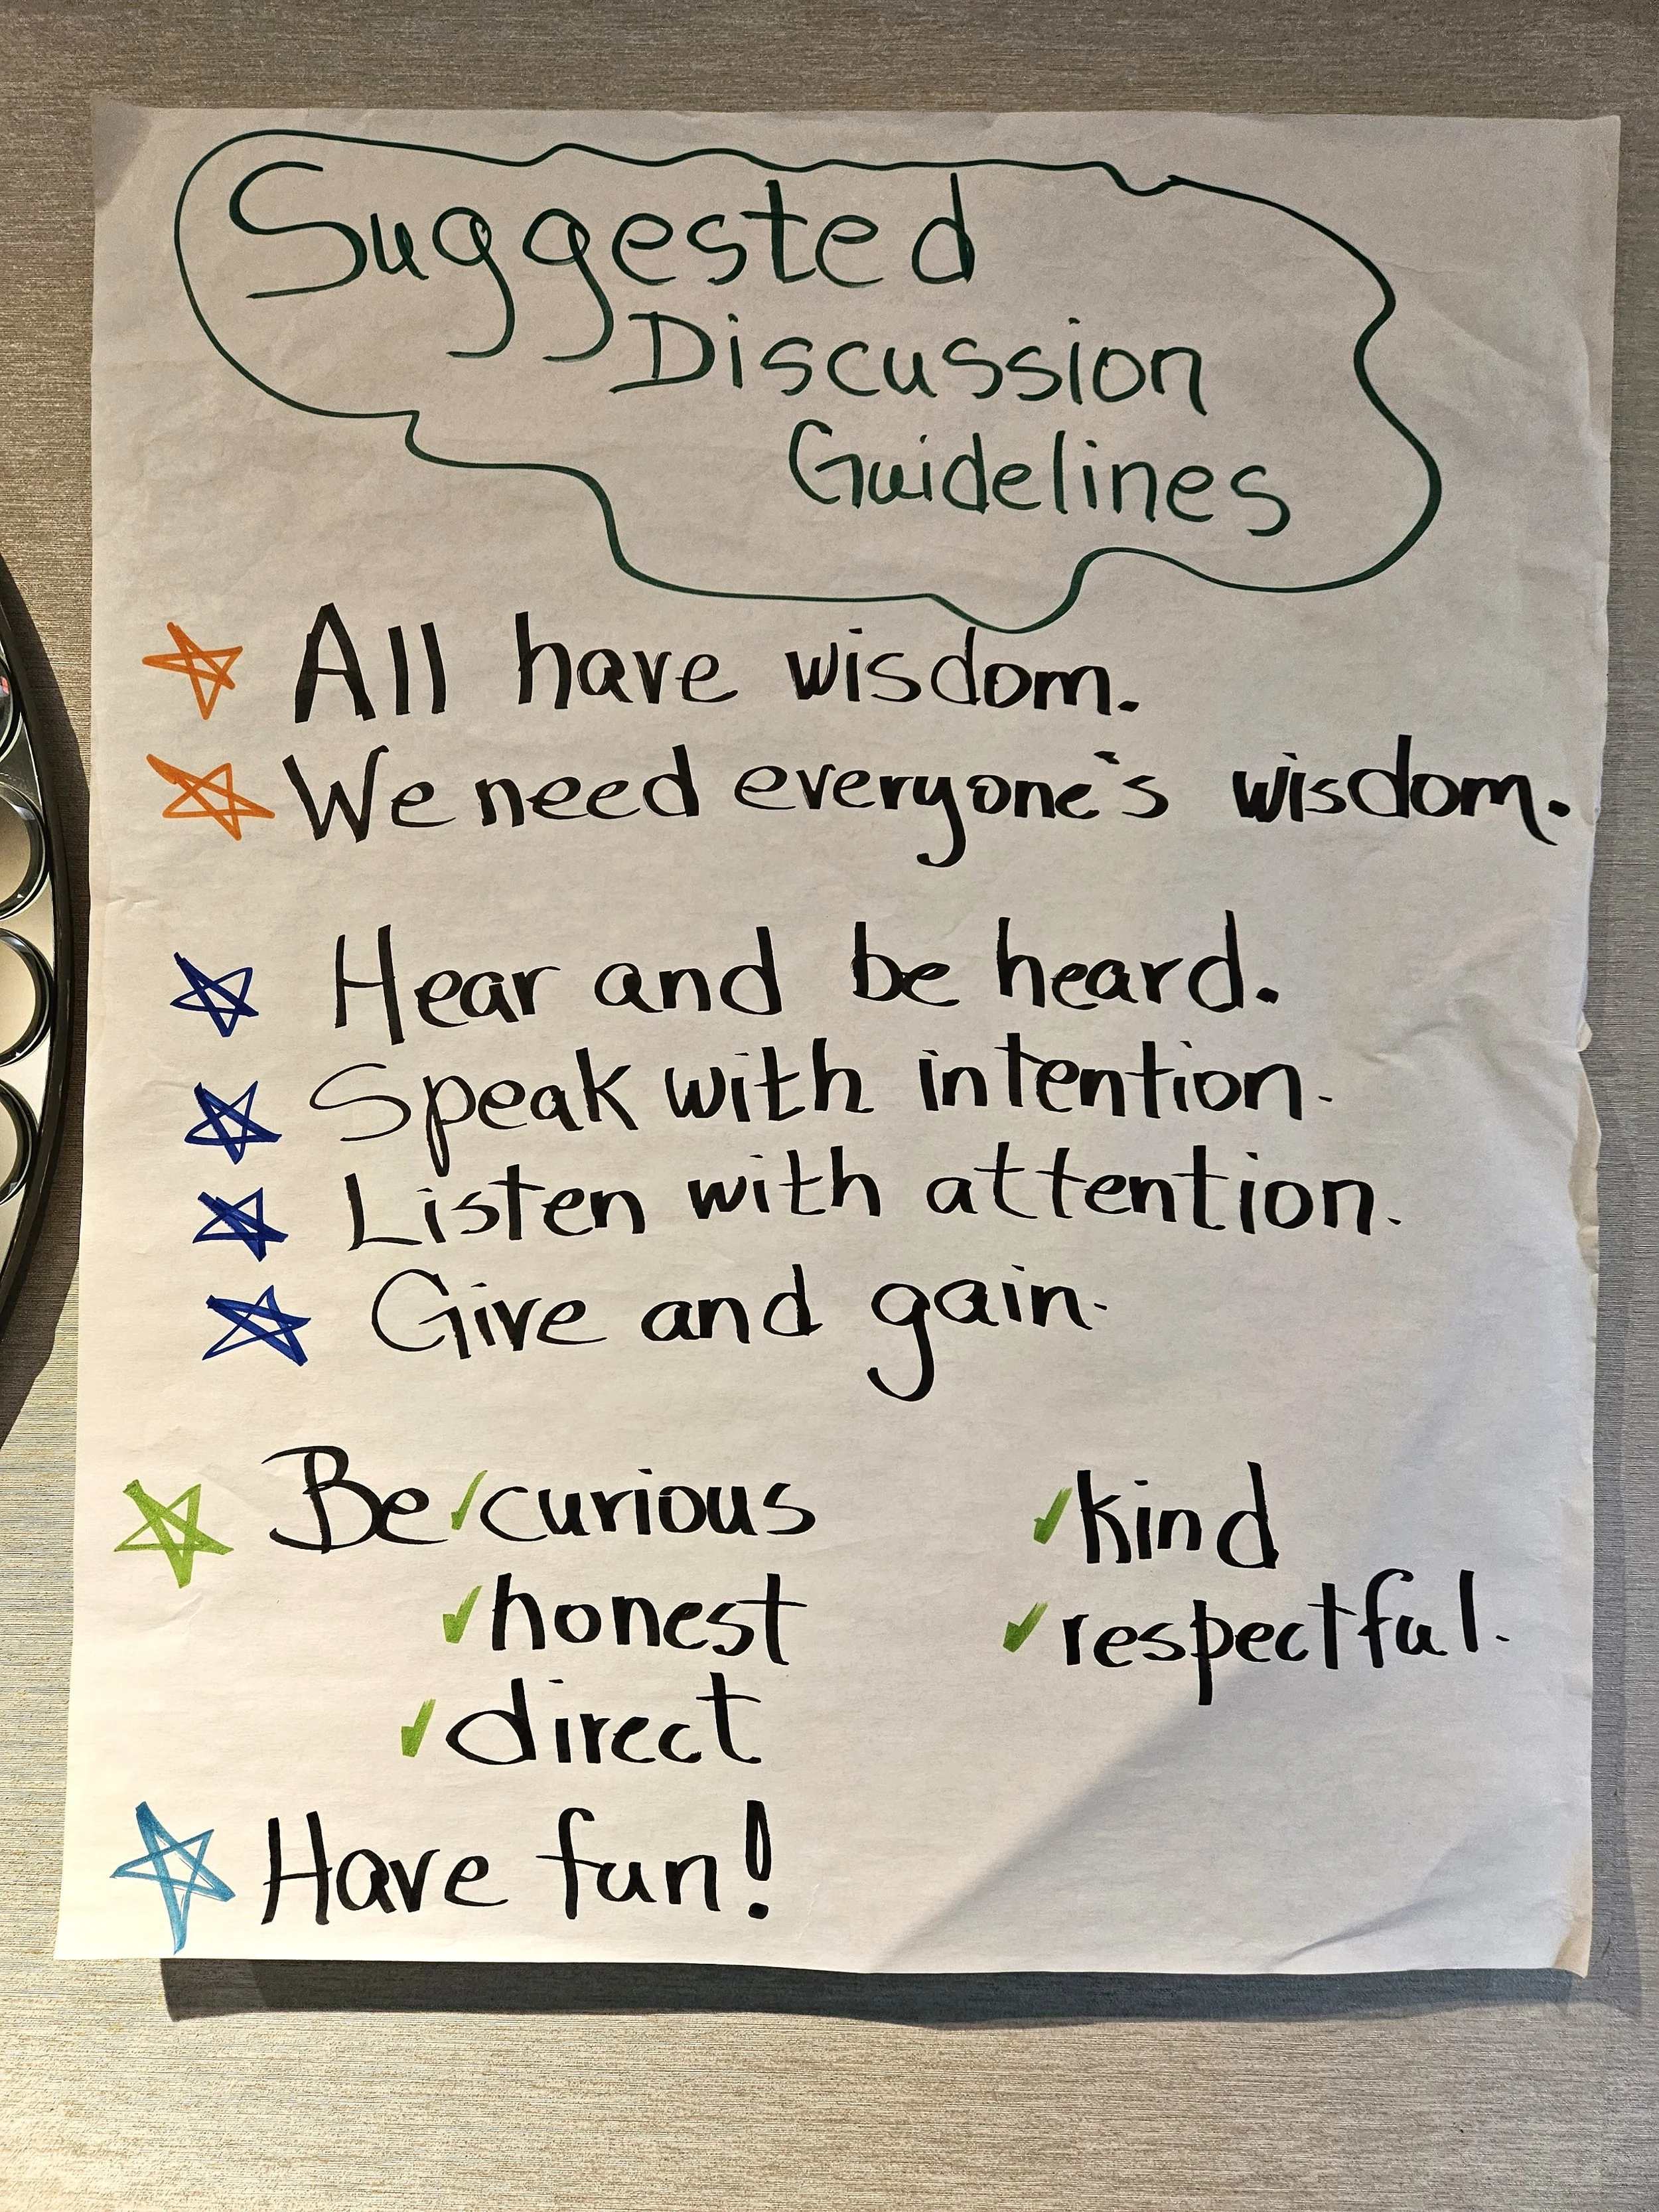 Suggested
Discussion
Guidelines
All have wisdom.
We need everyone's wisdom.
Hear and be heard.
Speak with intention.
Listen with attention.
Give and gain.
Be ✓curious ✓kind
✓honest ✓respectful.
✓direct
Have fun!